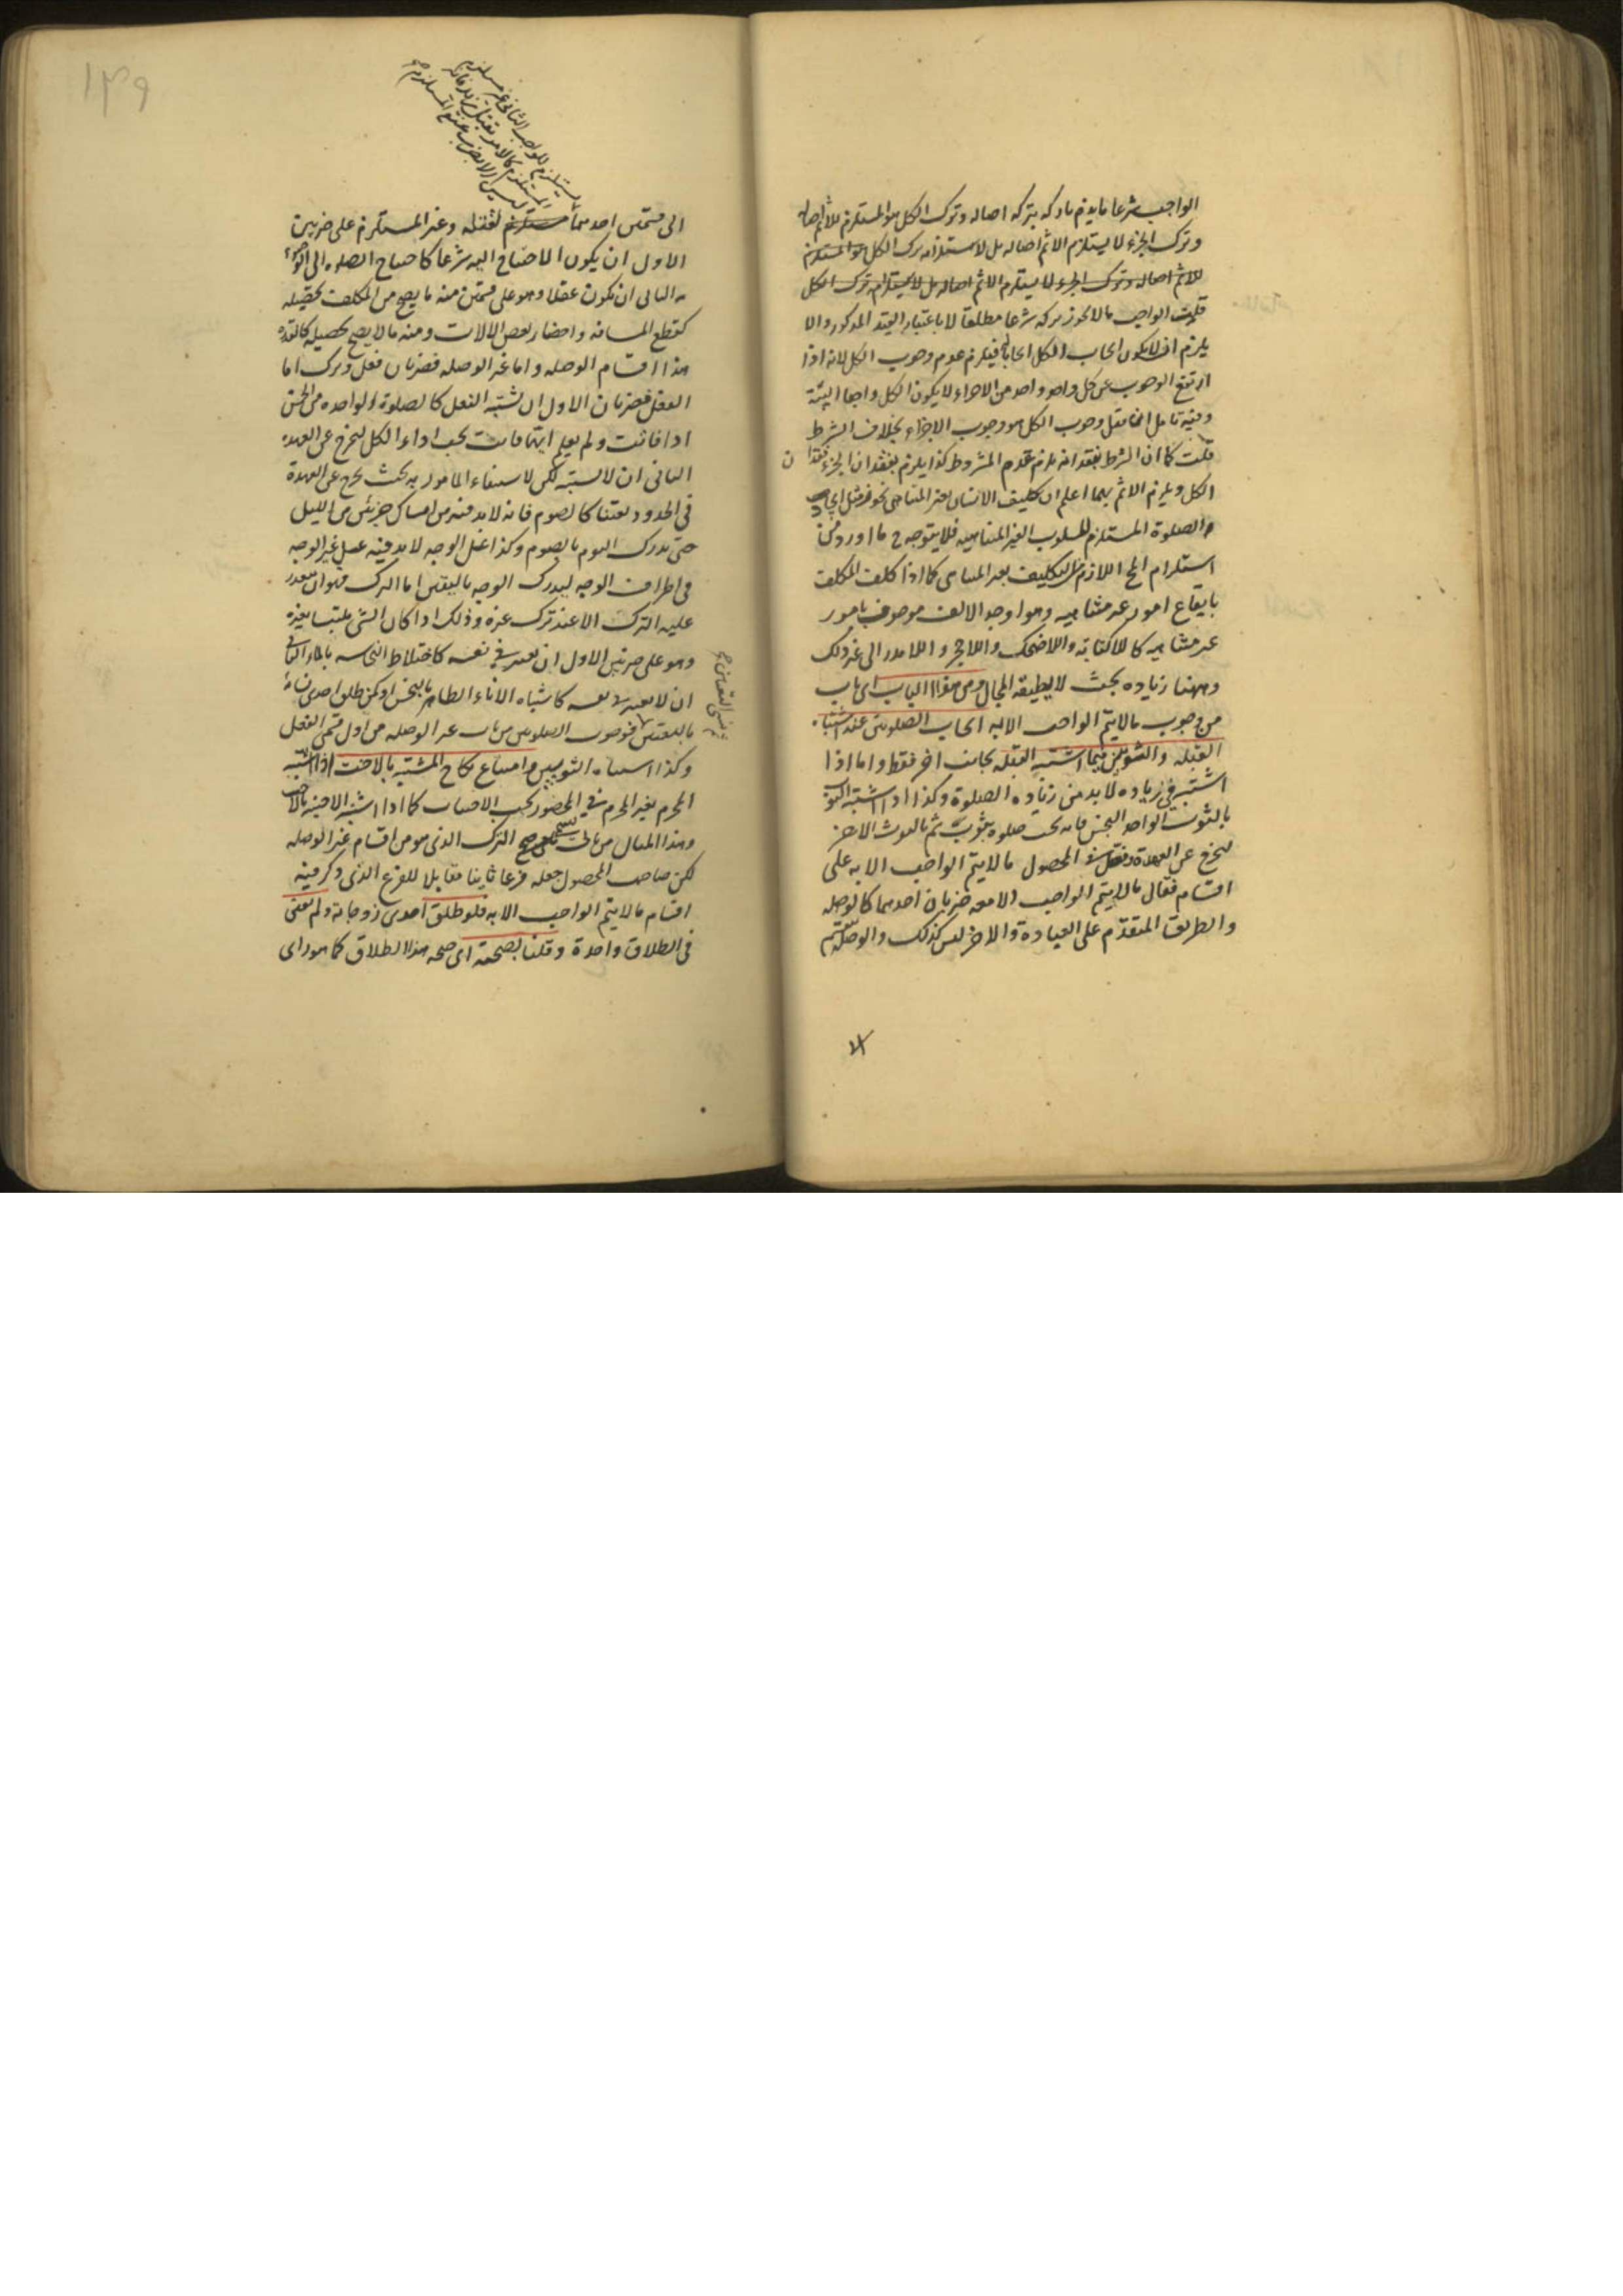 الواجب شرعا ما يذم تاركه بتركه اصالة وترك الكل هو المستلزم للاثم اصالة
وترك الجزء لا يستلزم الاثم اصاله بل لاستلزامه ترك الكل هو المستلزم
للاثم اصاله وترك الجزء لا يستلزم الاثم اصاله بل لاستلزامه ترك الكل
قلت الواجب ما لا يجوز تركه شرعا مطلقا لا باعتبار القيد المذكور والا
يلزم ان لا يكون ايجاب الكل ايجابا فيلزم عدم وجوب الكل لانه اذا
ارتفع الوجوب عن كل واحد واحد من الاجزاء لا يكون الكل واجبا البتة
وفيه تامل وجوب الكل هو وجوب الاجزاء بخلاف الشرط
قلت كما ان الشرط بفقدانه يلزم عدم المشروط كذا يلزم بفقدان الجزء فقدان
الكل ويلزم الاثم بهما اعلم ان تكليف الانسان بغير المتناهي نحو فرض
الصلوة المستلزم للسلوب الغير المتناهيه فلا يتوجه ح ما اورد من
استلزام المح اللازم للتكليف بغير المتناهى كما اذا كلف المكلف
بايقاع امور غير متناهيه وهو اوجد الالف موصوف بامور
غير متناهيه كاللاكتابة واللاضحك واللاحجر و الى غير ذلك
وههنا زياده بحث لا يطيقه المجال ومن هذا الباب اى باب
من وجوب ما لا يتم الواجب الا به ايجاب الصلوتين عند اشتباه
القبله والثوبين فيما اشتبه القبله بجانب اخر فقط واما اذا
اشتبه في زياده لا بد من زياده الصلوة وكذا اذا اشتبه الثوب
بالثوب الواحد النجس فانه يجب صلوة بثوب ثم بالثوب الاخر
ليخرج عن العهدة ونقل في المحصول ما لا يتم الواجب الا به على
اقسام فقال ما لا يتم الواجب الا معه ضربان احدهما كالوصله
والطريق المتقدم على العبادة والاخر ليس كذلك والوصلة تنقسم
الى قسمين احدهما مستلزم لفعله وغير المستلزم على ضربين
الاول ان يكون الاحتياج اليه شرعا كاحتياج الصلوه الى الوضوء
الثانى ان يكون عقلا وهو على قسمين منه ما يصح من المكلف تحصيله
كقطع المسافه واحضار بعض الالات ومنه ما لا يصح تحصيله كالقدرة
هذا اقسام الوصله واما غير الوصله فضربان فعل وترك اما
الفعل فضربان الاول ان يشتبه الفعل كالصلوة الواحده من الخمس
اذا فاتت ولم يعلم ايتها فانت يجب اداء الكل ليخرج عن العهدة
الثانى ان لا يشتبه لكن لاستيفاء المامور به بحيث يخرج عن العهدة
في الحدود يقينا كالصوم فانه لا بد فيه من امساك جزئين من الليل
حتى يدرك اليوم بالصوم وكذا غسل الوجه لا بد فيه غسل غير الوجه
في اطراف الوجه ليدرك الوجه باليقين اما الترك فهو ان يتعذر
عليه الترك الا عند ترك غيره وذلك اذا كان الشئ ملتبسا بغيره
وهو على ضربين الاول ان يتغير في نفسه كاختلاط النجاسه بالماء الثانى
ان لا يتغير في نفسه كاشتباه الاناء الطاهر بالنجس او كمن طلق احدى نسائه
باليقين فوجوب الصلوتين من باب غير الوصله من اول قسمى الفعل
وكذا اشتباه الثوبين وامتناع نكاح المشتبه بالاخت اذا اشتبه
المحرم بغير المحرم في المحصور يجب الاجتناب كما اذا اشتبه الاجنبية بالاخت
وهذا المثال من ثاني قسمي الترك الذى هو من اقسام غير الوصله
لكن صاحب المحصول جعله فرعا ثانيا مقابلا للفرع الذى ذكر فيه
اقسام ما لا يتم الواجب الا به فلو طلق احدى زوجاته ولم يعين
في الطلاق واحدة وقلنا بصحته اى صحه هذا الطلاق كما هو راى